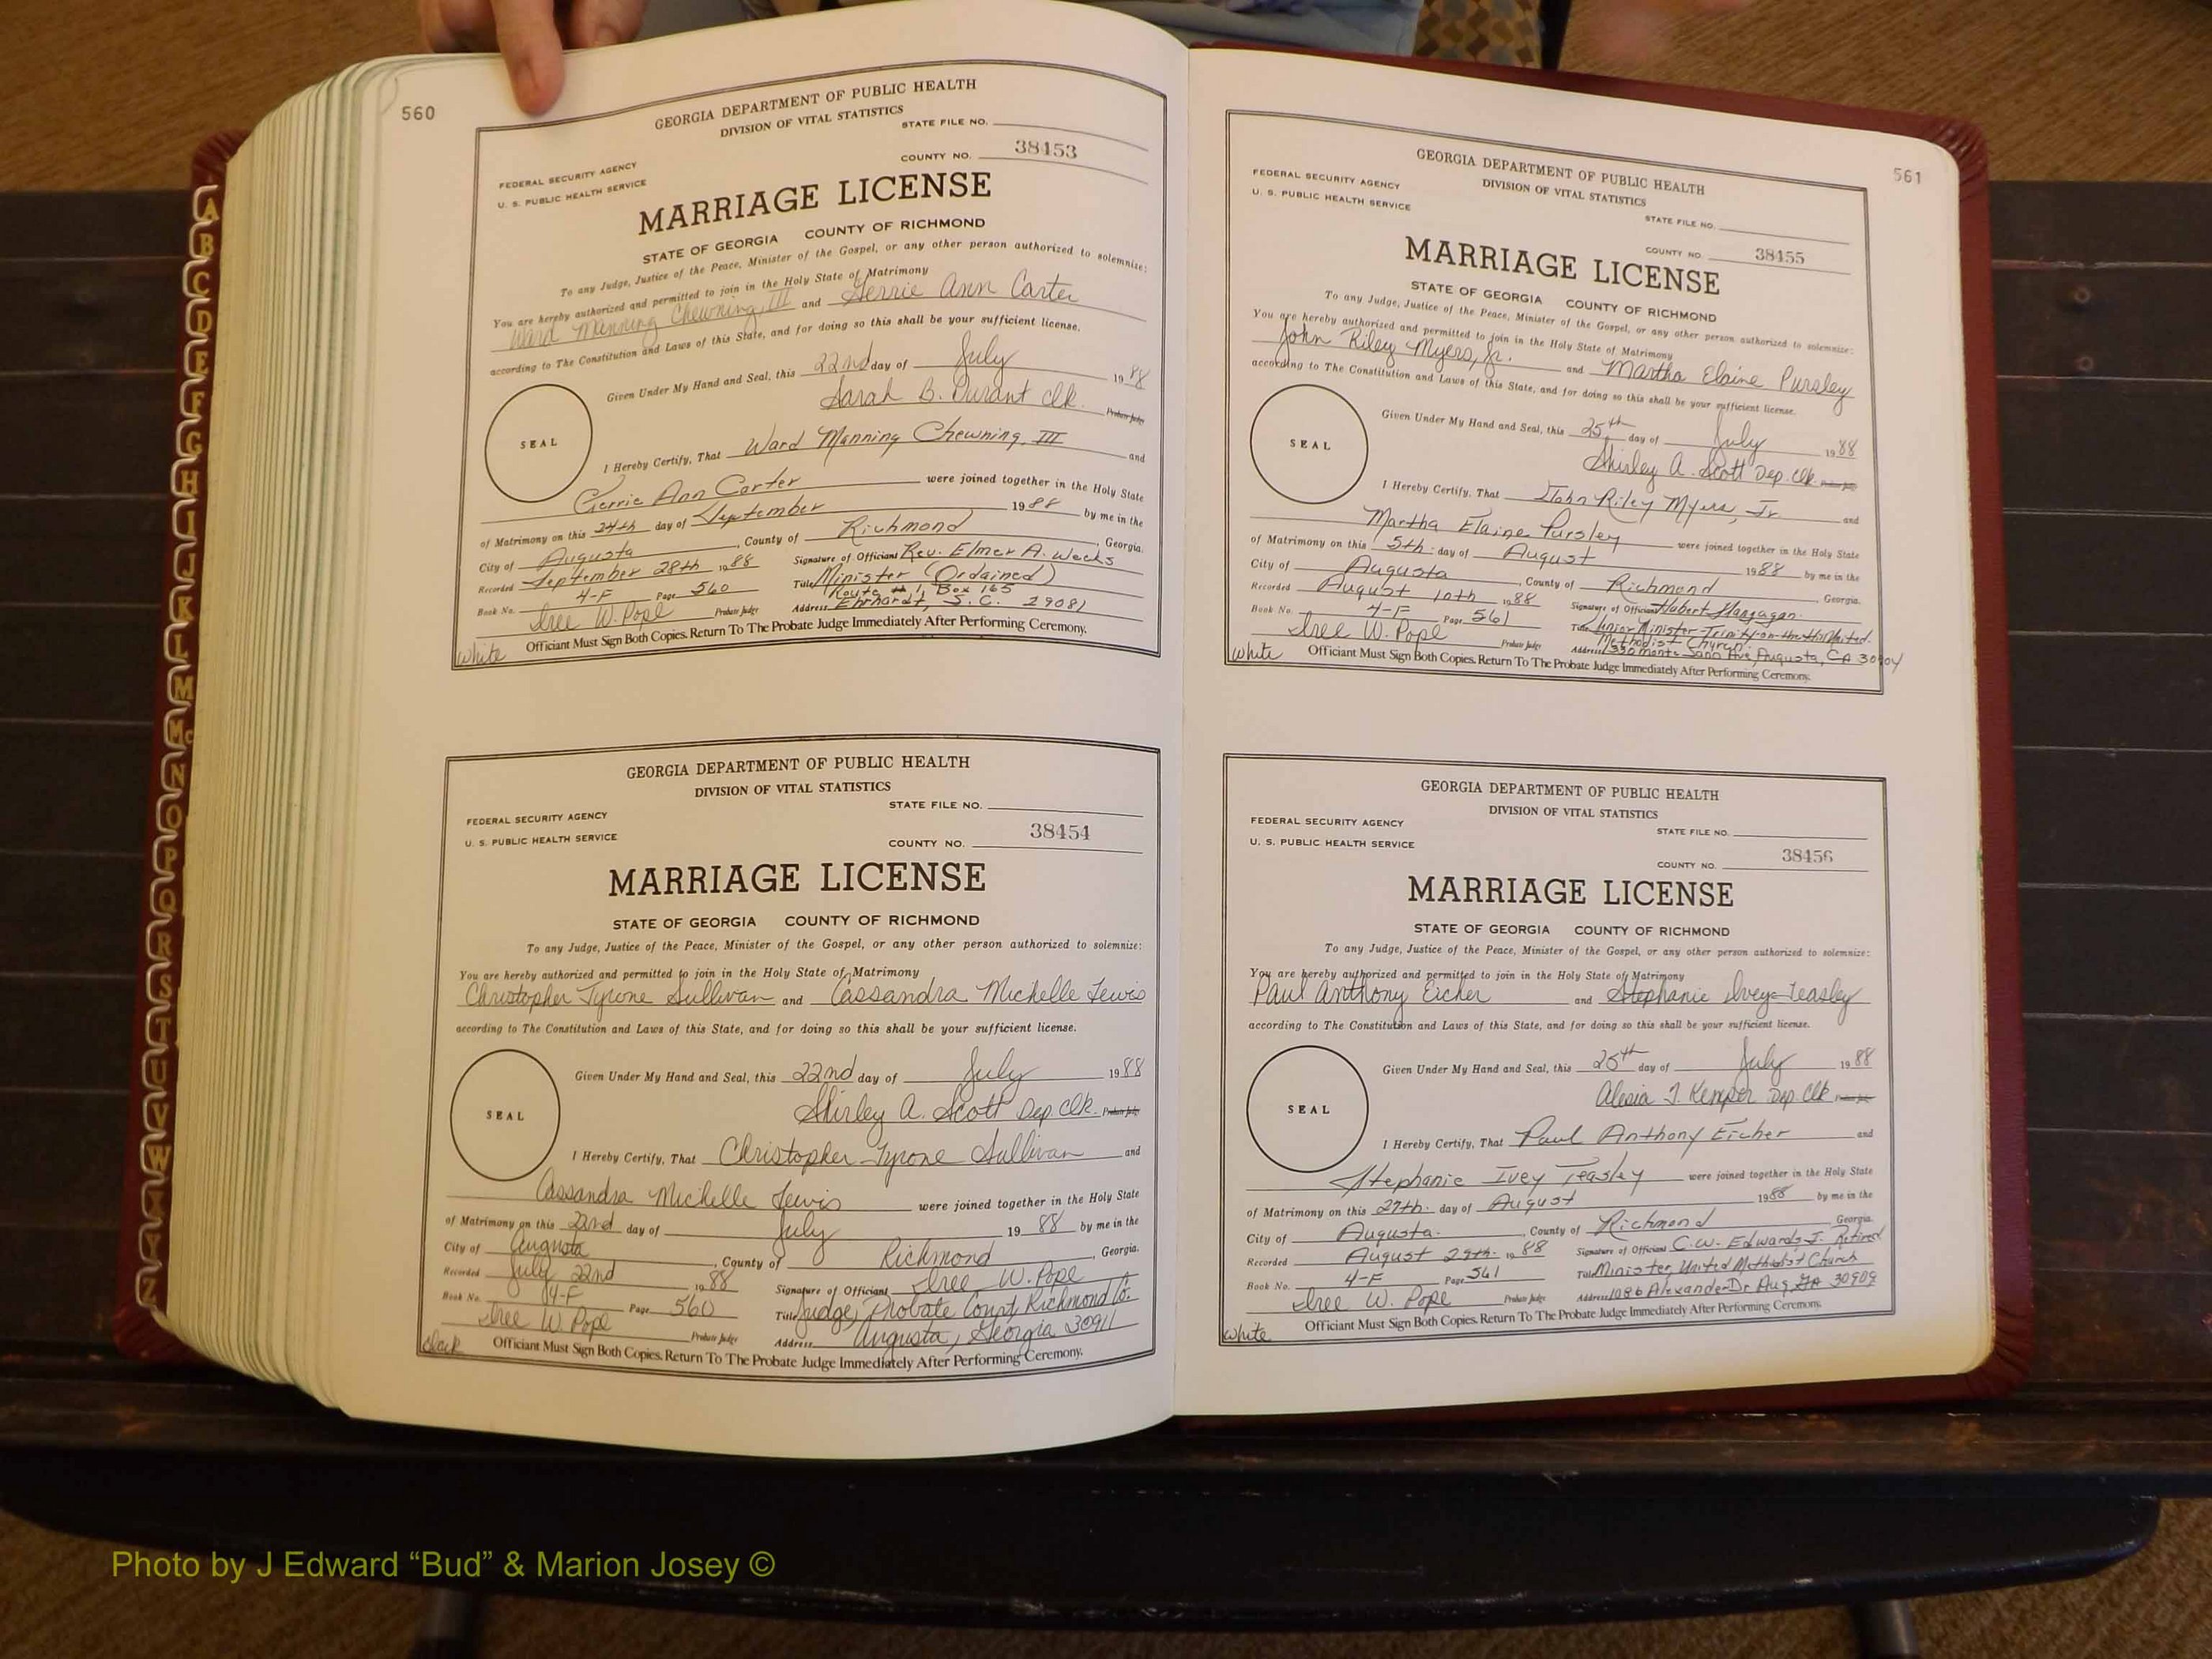 560
GEORGIA DEPARTMENT OF PUBLIC HEALTH
DIVISION OF VITAL STATISTICS
STATE FILE NO.
FEDERAL SECURITY AGENCY
COUNTY NO. 38453
U. S. PUBLIC HEALTH SERVICE
MARRIAGE LICENSE
STATE OF GEORGIA COUNTY OF RICHMOND
To any Judge, Justice of the Peace, Minister of the Gospel, or any other person authorized to solemnize:
You are hereby authorized and permitted to join in the Holy State of Matrimony
Ward Manning Chewning, III and Gerrie Ann Carter
according to The Constitution and Laws of this State, and for doing so this shall be your sufficient license.
Given Under My Hand and Seal, this 22nd day of July 1988
Sarah B. Durant Clk. Probate Judge
SEAL
I Hereby Certify, That Ward Manning Chewning, III and
Gerrie Ann Carter were joined together in the Holy State
of Matrimony on this 24th day of September 1988 by me in the
City of Augusta, County of Richmond, Georgia.
Recorded September 28th 1988 Signature of Officiant Rev. Elmer A. Weeks
Book No. 4-F Page 560 Title Minister (Ordained)
Route # 1, Box 165
Iree W. Pope Probate Judge Address Ehrhardt, S. C. 29081
Officiant Must Sign Both Copies. Return To The Probate Judge Immediately After Performing Ceremony.
White
GEORGIA DEPARTMENT OF PUBLIC HEALTH
DIVISION OF VITAL STATISTICS
STATE FILE NO.
FEDERAL SECURITY AGENCY
COUNTY NO. 38454
U. S. PUBLIC HEALTH SERVICE
MARRIAGE LICENSE
STATE OF GEORGIA COUNTY OF RICHMOND
To any Judge, Justice of the Peace, Minister of the Gospel, or any other person authorized to solemnize:
You are hereby authorized and permitted to join in the Holy State of Matrimony
Christopher Tyrone Sullivan and Cassandra Michelle Lewis
according to The Constitution and Laws of this State, and for doing so this shall be your sufficient license.
Given Under My Hand and Seal, this 22nd day of July 1988
Shirley A. Scott Dep. Clk. Probate Judge
SEAL
I Hereby Certify, That Christopher Tyrone Sullivan and
Cassandra Michelle Lewis were joined together in the Holy State
of Matrimony on this 22nd day of July 1988 by me in the
City of Augusta, County of Richmond, Georgia.
Recorded July 22nd 1988 Signature of Officiant Iree W. Pope
Book No. 4-F Page 560 Title Judge, Probate Court Richmond Co.
Iree W. Pope Probate Judge Address Augusta, Georgia 30911
Officiant Must Sign Both Copies. Return To The Probate Judge Immediately After Performing Ceremony.
black
561
GEORGIA DEPARTMENT OF PUBLIC HEALTH
DIVISION OF VITAL STATISTICS
STATE FILE NO.
FEDERAL SECURITY AGENCY
COUNTY NO. 38455
U. S. PUBLIC HEALTH SERVICE
MARRIAGE LICENSE
STATE OF GEORGIA COUNTY OF RICHMOND
To any Judge, Justice of the Peace, Minister of the Gospel, or any other person authorized to solemnize:
You are hereby authorized and permitted to join in the Holy State of Matrimony
John Riley Myers, Jr. and Martha Elaine Pursley
according to The Constitution and Laws of this State, and for doing so this shall be your sufficient license.
Given Under My Hand and Seal, this 25th day of July 1988
Shirley A. Scott Dep. Clk. Probate Judge
SEAL
I Hereby Certify, That John Riley Myers, Jr. and
Martha Elaine Pursley were joined together in the Holy State
of Matrimony on this 5th day of August 1988 by me in the
City of Augusta, County of Richmond, Georgia.
Recorded August 10th 1988 Signature of Officiant Hubert Flanagan
Book No. 4-F Page 561 Title Senior Minister Trinity-on-the-Hill United
Methodist Church
Iree W. Pope Probate Judge Address 1330 Monte Sano Ave, Augusta, GA 30904
Officiant Must Sign Both Copies. Return To The Probate Judge Immediately After Performing Ceremony.
White
GEORGIA DEPARTMENT OF PUBLIC HEALTH
DIVISION OF VITAL STATISTICS
STATE FILE NO.
FEDERAL SECURITY AGENCY
COUNTY NO. 38456
U. S. PUBLIC HEALTH SERVICE
MARRIAGE LICENSE
STATE OF GEORGIA COUNTY OF RICHMOND
To any Judge, Justice of the Peace, Minister of the Gospel, or any other person authorized to solemnize:
You are hereby authorized and permitted to join in the Holy State of Matrimony
Paul Anthony Eicher and Stephanie Ivey Teasley
according to The Constitution and Laws of this State, and for doing so this shall be your sufficient license.
Given Under My Hand and Seal, this 25th day of July 1988
Alesia J. Kemper Dep. Clk Probate Judge
SEAL
I Hereby Certify, That Paul Anthony Eicher and
Stephanie Ivey Teasley were joined together in the Holy State
of Matrimony on this 27th. day of August 1988 by me in the
City of Augusta, County of Richmond, Georgia.
Recorded August 29th 1988 Signature of Officiant C. W. Edwards J. Retired
Book No. 4-F Page 561 Title Minister, United Methodist Church
Iree W. Pope Probate Judge Address 1086 Alexander Dr Aug, GA 30909
Officiant Must Sign Both Copies. Return To The Probate Judge Immediately After Performing Ceremony.
White
A
B
C
D
E
F
G
H
I
J
K
L
M
Mc
N
O
P
Q
R
S
T
U
V
W
X
Y
Z
Photo by J Edward “Bud” & Marion Josey ©